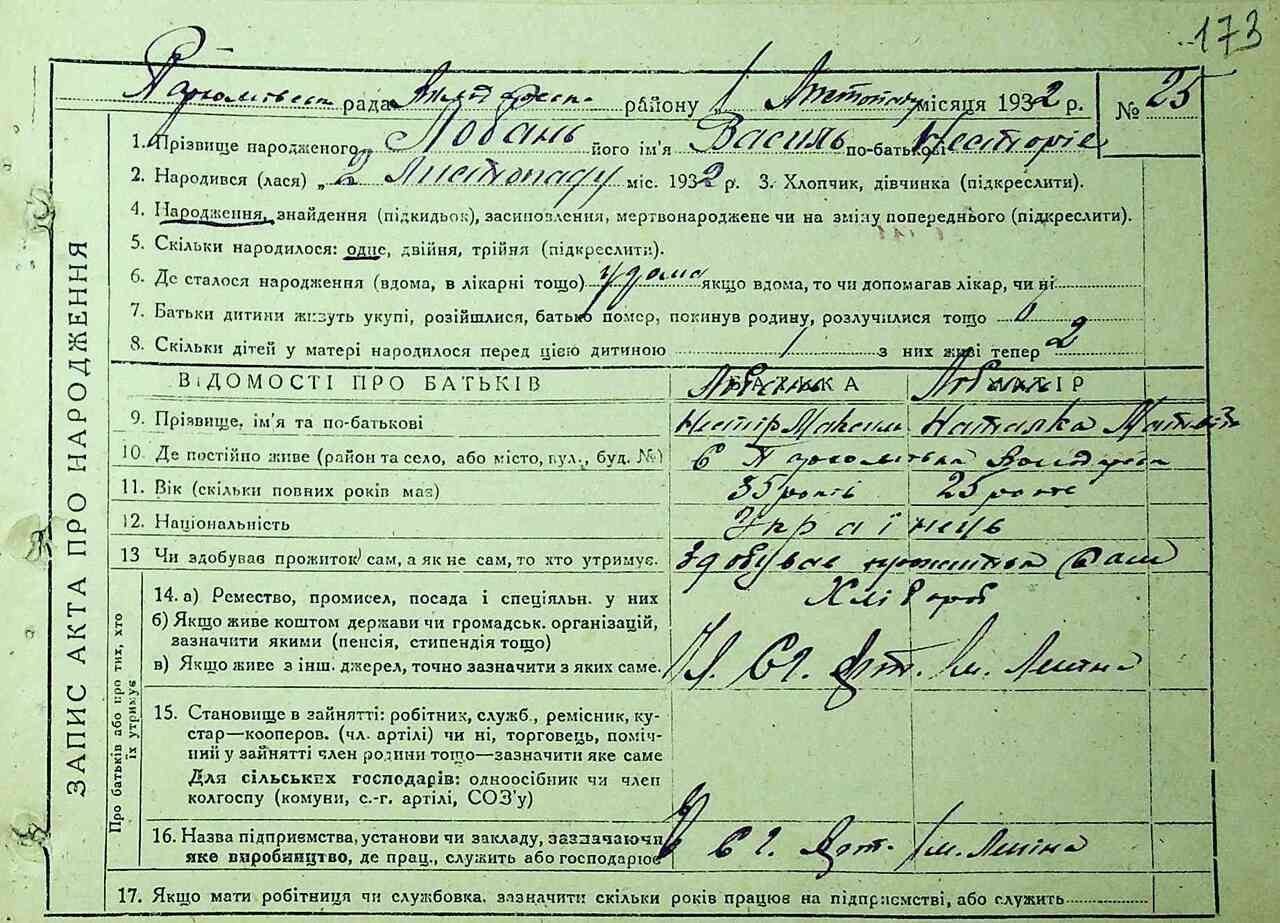 173
рада району 1 Листопаду місяця 1932 р. № 25
1. Прізвище народженого Лобань його ім'я Василь по-батькові Несторів
2. Народився (лася) „2 Листопаду міс. 1932 р. 3. Хлопчик, дівчинка (підкреслити).
4. Народження, знайдення (підкидьок), засиновлення, мертвонароджене чи на зміну попереднього (підкреслити).
5. Скільки народилося: одне, двійня, трійня (підкреслити).
6. Де сталося народження (вдома, в лікарні тощо) удома якщо вдома, то чи допомагав лікар, чи ні
7. Батьки дитини живуть укупі, розійшлися, батько помер, покинув родину, розлучилися тощо
8. Скільки дітей у матері народилося перед цією дитиною 1 з них живі тепер 2
ЗАПИС АКТА ПРО НАРОДЖЕННЯ
ВІДОМОСТІ ПРО БАТЬКІВ БАТЬКА МАТІР
Лобань Лобань
9. Прізвище, ім'я та по-батькові Нестір Максим Наталка
10. Де постійно живе (район та село, або місто, вул., буд. №) с
11. Вік (скільки повних років має) 35 років 25 років
12. Національність Українець
13 Чи здобував прожиток сам, а як не сам, то хто утримує. Здобував прожиток сам
Про батьків або про тих, хто їх утримує
14. а) Ремество, промисел, посада і спеціяльн. у них Хлібороб
б) Якщо живе коштом держави чи громадськ. організацій,
зазначити якими (пенсія, стипендія тощо)
в) Якщо живе з інш. джерел, точно зазначити з яких саме. Чл. Сг. Арт. Ім. Леніна
15. Становище в зайнятті: робітник, служб., ремісник, ку-
стар—кооперов. (чл. артілі) чи ні, торговець, поміч-
ний у зайнятті член родини тощо—зазначити яке саме
Для сільських господарів: одноосібник чи член
колгоспу (комуни, с.-г. артілі, СОЗ'у)
16. Назва підприємства, установи чи закладу, зазначаючи
яке виробництво, де прац., служить або господарює Сг. Арт. Ім. Леніна
17. Якщо мати робітниця чи службовка, зазначити скільки років працює на підприємстві, або служить